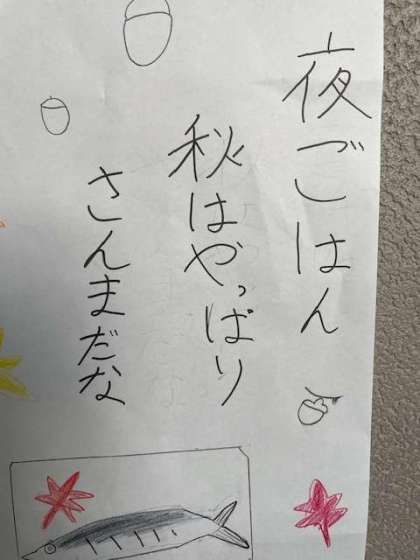 夜ごはん
秋はやっぱり
さんまだな